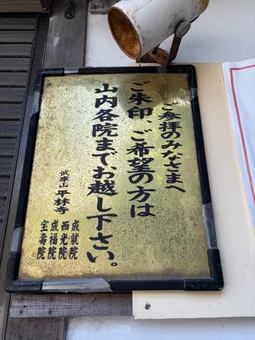 ご参拝のみなさまへ
ご朱印ご希望の方は
山内各院までお越し下さい。
武庫山 平林寺
成就院
西光院
成福院
宝壽院